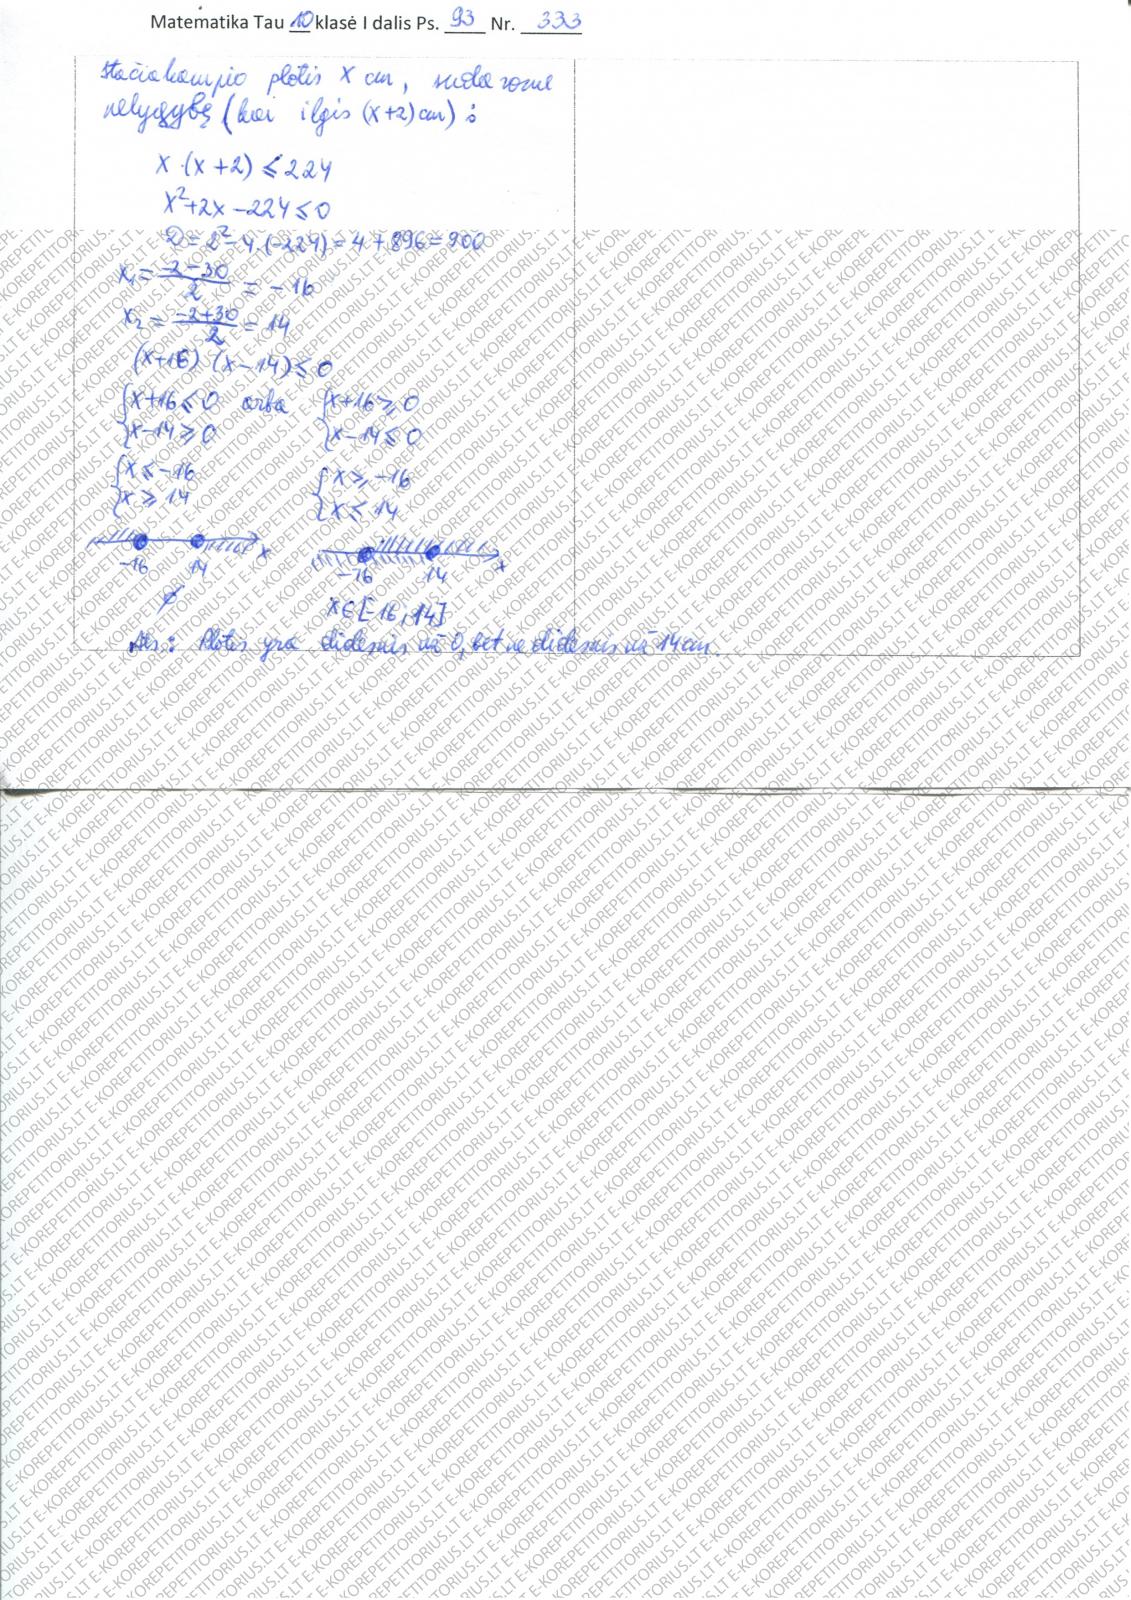 Matematika Tau 10 klasė I dalis Ps. 93 Nr. 333
Stačiakampio plotis x cm, sudarome
nelygybę (kai ilgis (x+2) cm) :
x·(x+2) ⩽ 224
x²+2x−224 ⩽ 0
D=2²−4·(−224)=4+896=900
x₁ = (−2−30)/2 = −16
x₂ = (−2+30)/2 = 14
(x+16)·(x−14) ⩽ 0
{x+16 ⩽ 0 arba {x+16 ⩾ 0
{x−14 ⩾ 0 {x−14 ⩽ 0
{x ⩽ −16 {x ⩾ −16
{x ⩾ 14 {x ⩽ 14
−16 14 x −16 14 x
∅ x∈[−16; 14]
Ats.: Plotis yra didesnis už 0, bet ne didesnis už 14 cm.
E-KOREPETITORIUS.LT